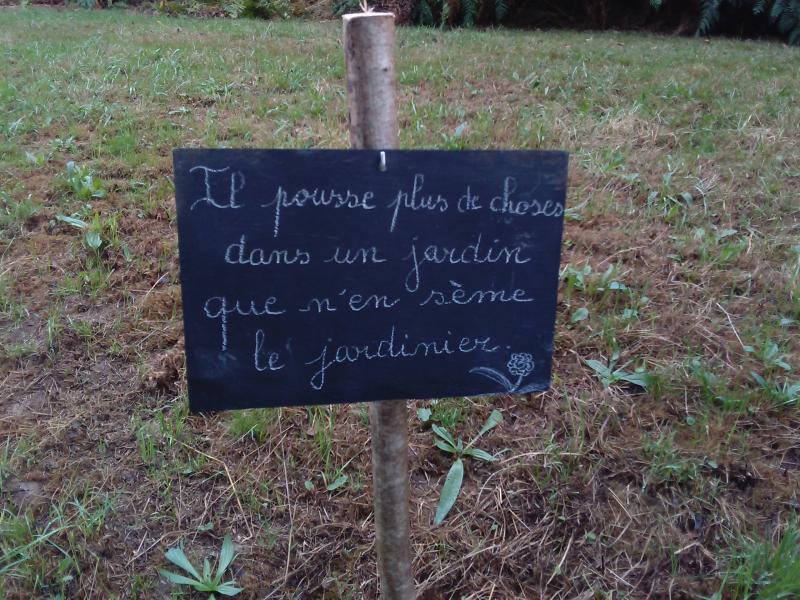 Il pousse plus de choses
dans un jardin
que n'en sème
le jardinier.